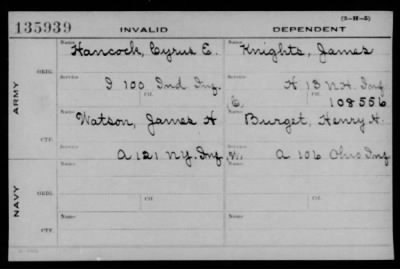 (3-H-5)
135939 INVALID DEPENDENT
Name Hancock, Cyrus E. Name Knights, James
ARMY
ORIG.
Service I 100 Ind Inf. Service H 13 N.H. Inf
Ctf. C. Ctf. 108556
Name Watson, James H Name Burget, Henry H.
CTF.
Service A 121 N.Y. Inf, W. A 106 Ohio Inf
NAVY
Name Name
ORIG.
Ctf. Ctf.
Name Name
CTF.